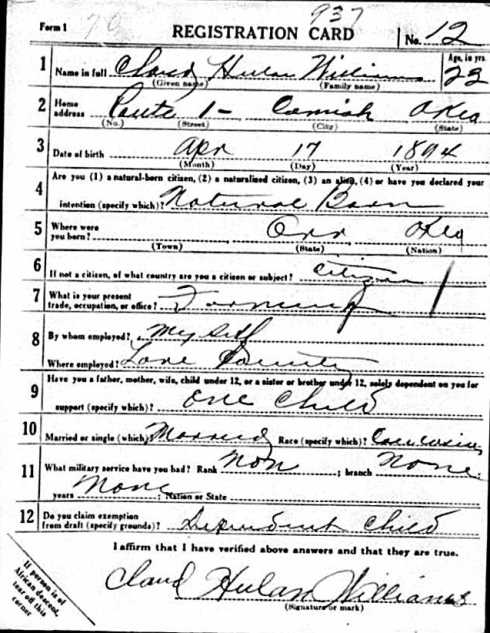 937
Form 1 70 REGISTRATION CARD No. 12
1 Name in full Claud Hulan Williams Age, in yrs. 22
(Given name) (Family name)
2 Home address Route 1 - Cornish Okla
(No.) (Street) (City) (State)
3 Date of birth Apr 17 1894
(Month) (Day) (Year)
4 Are you (1) a natural-born citizen, (2) a naturalized citizen, (3) an alien, (4) or have you declared your
intention (specify which)? Natural Born
5 Where were you born? Orr Okla
(Town) (State) (Nation)
6 If not a citizen, of what country are you a citizen or subject? Citizen
7 What is your present trade, occupation, or office? Farming
8 By whom employed? My Self
Where employed? Love County
9 Have you a father, mother, wife, child under 12, or a sister or brother under 12, solely dependent on you for
support (specify which)? One Child
10 Married or single (which)? Married Race (specify which)? Caucasian
11 What military service have you had? Rank Non ; branch None
years None ; Nation or State
12 Do you claim exemption from draft (specify grounds)? Dependent Child
I affirm that I have verified above answers and that they are true.
Claud Hulan Williams
(Signature or mark)
If person is of
African descent,
tear off this
corner